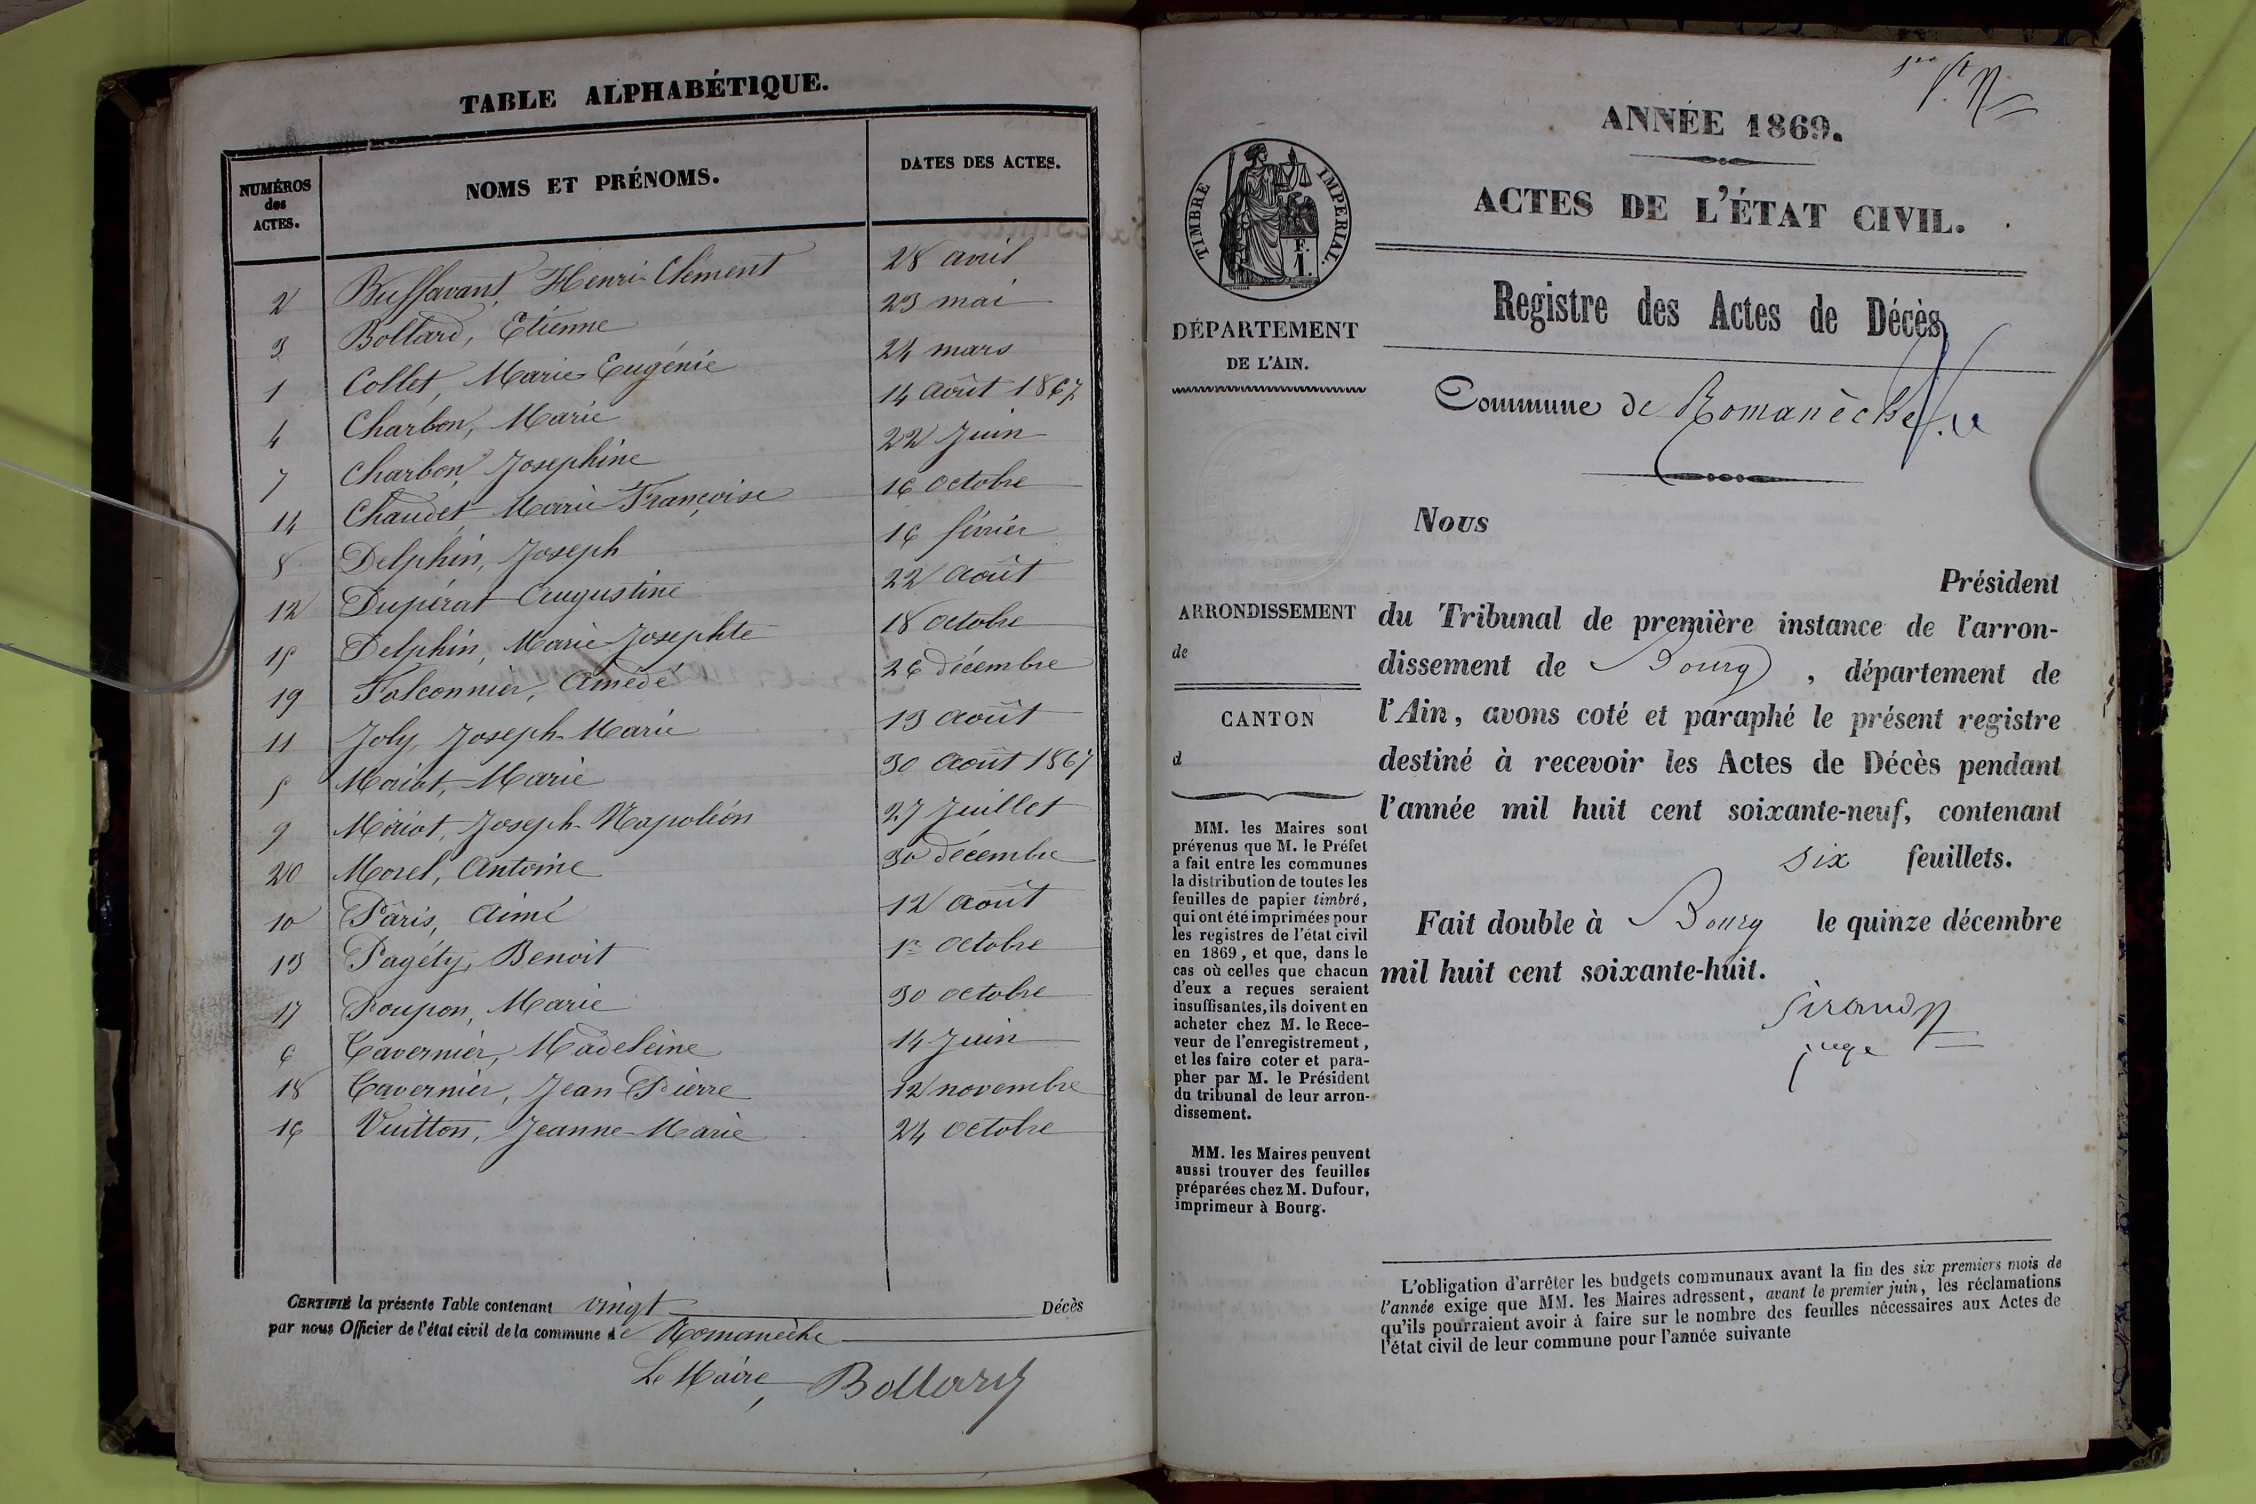 TABLE ALPHABÉTIQUE.
NUMÉROS des ACTES. NOMS ET PRÉNOMS. DATES DES ACTES.
2 Buffavant, Henri-Clément 28 avril
3 Bollard, Etienne 23 mai
1 Collet, Marie-Eugénie 24 mars
4 Charbon, Marie 14 août 1867
7 Charbon, Josephine 22 Juin
14 Chaudet Marie-Françoise 16 octobre
8 Delphin, Joseph 16 février
12 Dupérat Augustine 22 août
15 Delphin, Marie-Josephte 18 octobre
19 Falconnier, Amédé 26 décembre
11 Joly, Joseph-Marie 13 août
5 Moriot, Marie 30 août 1867
9 Moriot, Joseph-Napoléon 27 Juillet
20 Morel, Antoine 30 décembre
10 Pâris, Aimé 12 août
13 Pagéty, Benoit 1er octobre
17 Poupon, Marie 30 octobre
6 Tavernier, Madeleine 14 Juin
18 Tavernier, Jean Pierre 12 novembre
16 Vuitton, Jeanne-Marie 24 octobre
CERTIFIÉ la présente Table contenant vingt Décès
par nous Officier de l'état civil de la commune de Romanèche
Le Maire, Bollard
ANNÉE 1869.
ACTES DE L'ÉTAT CIVIL.
TIMBRE IMPERIAL.
F.
1.
Registre des Actes de Décès
DÉPARTEMENT
DE L'AIN.
Commune de Romanèche
Nous
Président
ARRONDISSEMENT
de
CANTON
d
du Tribunal de première instance de l'arron-
dissement de Bourg, département de
l'Ain, avons coté et paraphé le présent registre
destiné à recevoir les Actes de Décès pendant
l'année mil huit cent soixante-neuf, contenant
six feuillets.
Fait double à Bourg le quinze décembre
mil huit cent soixante-huit.
juge
MM. les Maires sont
prévenus que M. le Préfet
a fait entre les communes
la distribution de toutes les
feuilles de papier timbré,
qui ont été imprimées pour
les registres de l'état civil
en 1869, et que, dans le
cas où celles que chacun
d'eux a reçues seraient
insuffisantes, ils doivent en
acheter chez M. le Rece-
veur de l'enregistrement,
et les faire coter et para-
pher par M. le Président
du tribunal de leur arron-
dissement.
MM. les Maires peuvent
aussi trouver des feuilles
préparées chez M. Dufour,
imprimeur à Bourg.
L'obligation d'arrêter les budgets communaux avant la fin des six premiers mois de
l'année exige que MM. les Maires adressent, avant le premier juin, les réclamations
qu'ils pourraient avoir à faire sur le nombre des feuilles nécessaires aux Actes de
l'état civil de leur commune pour l'année suivante